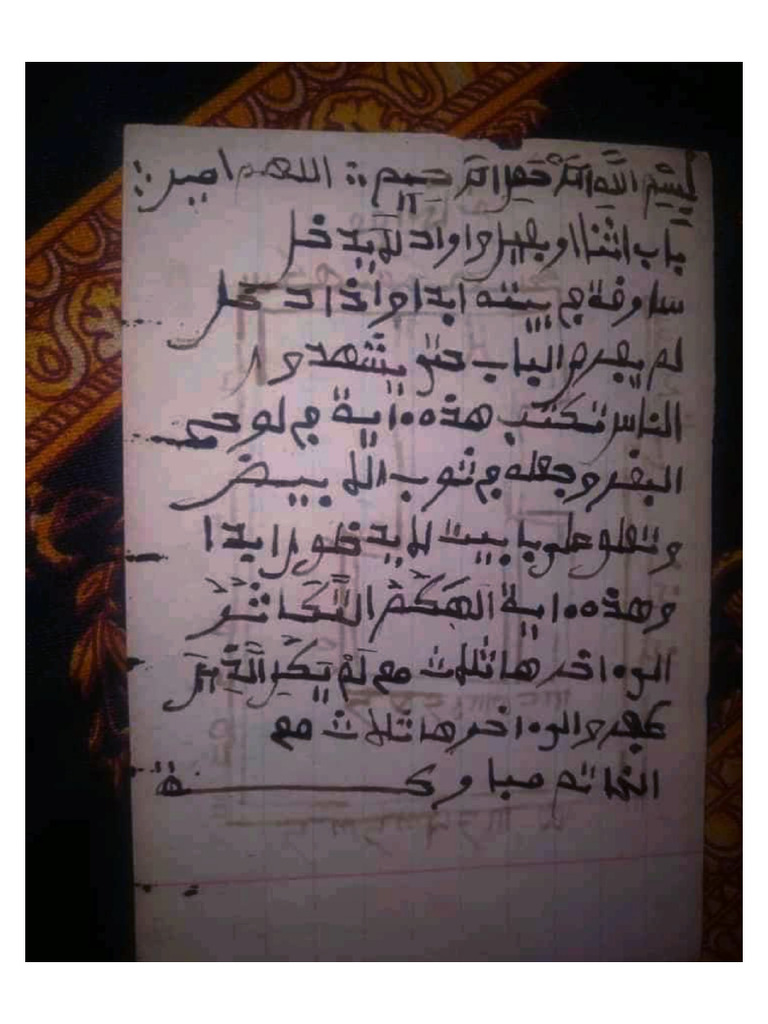 بِسْمِ اللَّهِ الرَّحْمَنِ الرَّحِيمِ :: اللهم امين ::
باب اثنا او بعير واواد لا يدخل
سارقة في بيته ابدا واذا دخل
لم يعرف الباب حتى يشهدوا
الناس تكتب هذه اية في لوح
البقر وجعله في ثوب الابيض
وتعلق على باب بيت لا يدخلون ابدا
وهذه اية الهَكُمُ التَّكَاثُرُ
الى اخرها ثلاث مع لَمْ يَكُنِ الَّذِينَ
كفروا الى اخرها ثلاث مع
الخاتم مباركة